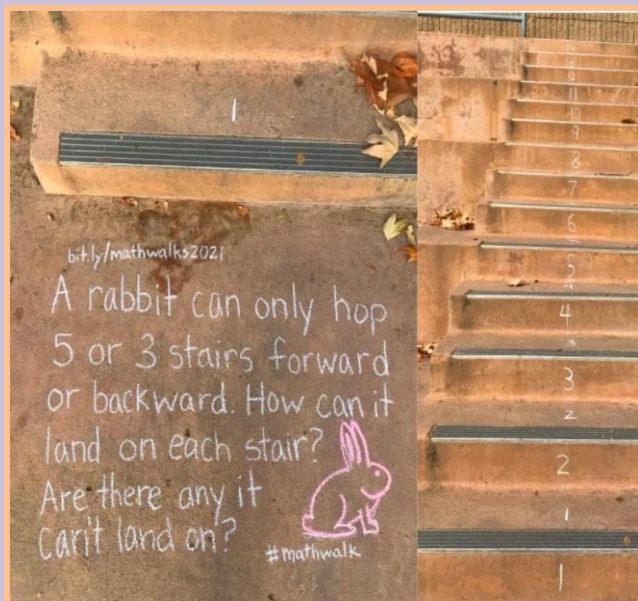 1
bit.ly/mathwalks2021
A rabbit can only hop
5 or 3 stairs forward
or backward. How can it
land on each stair?
Are there any it
can't land on?
#mathwalk
12
11
10
9
8
7
6
5
4
4
3
3
2
2
1
1